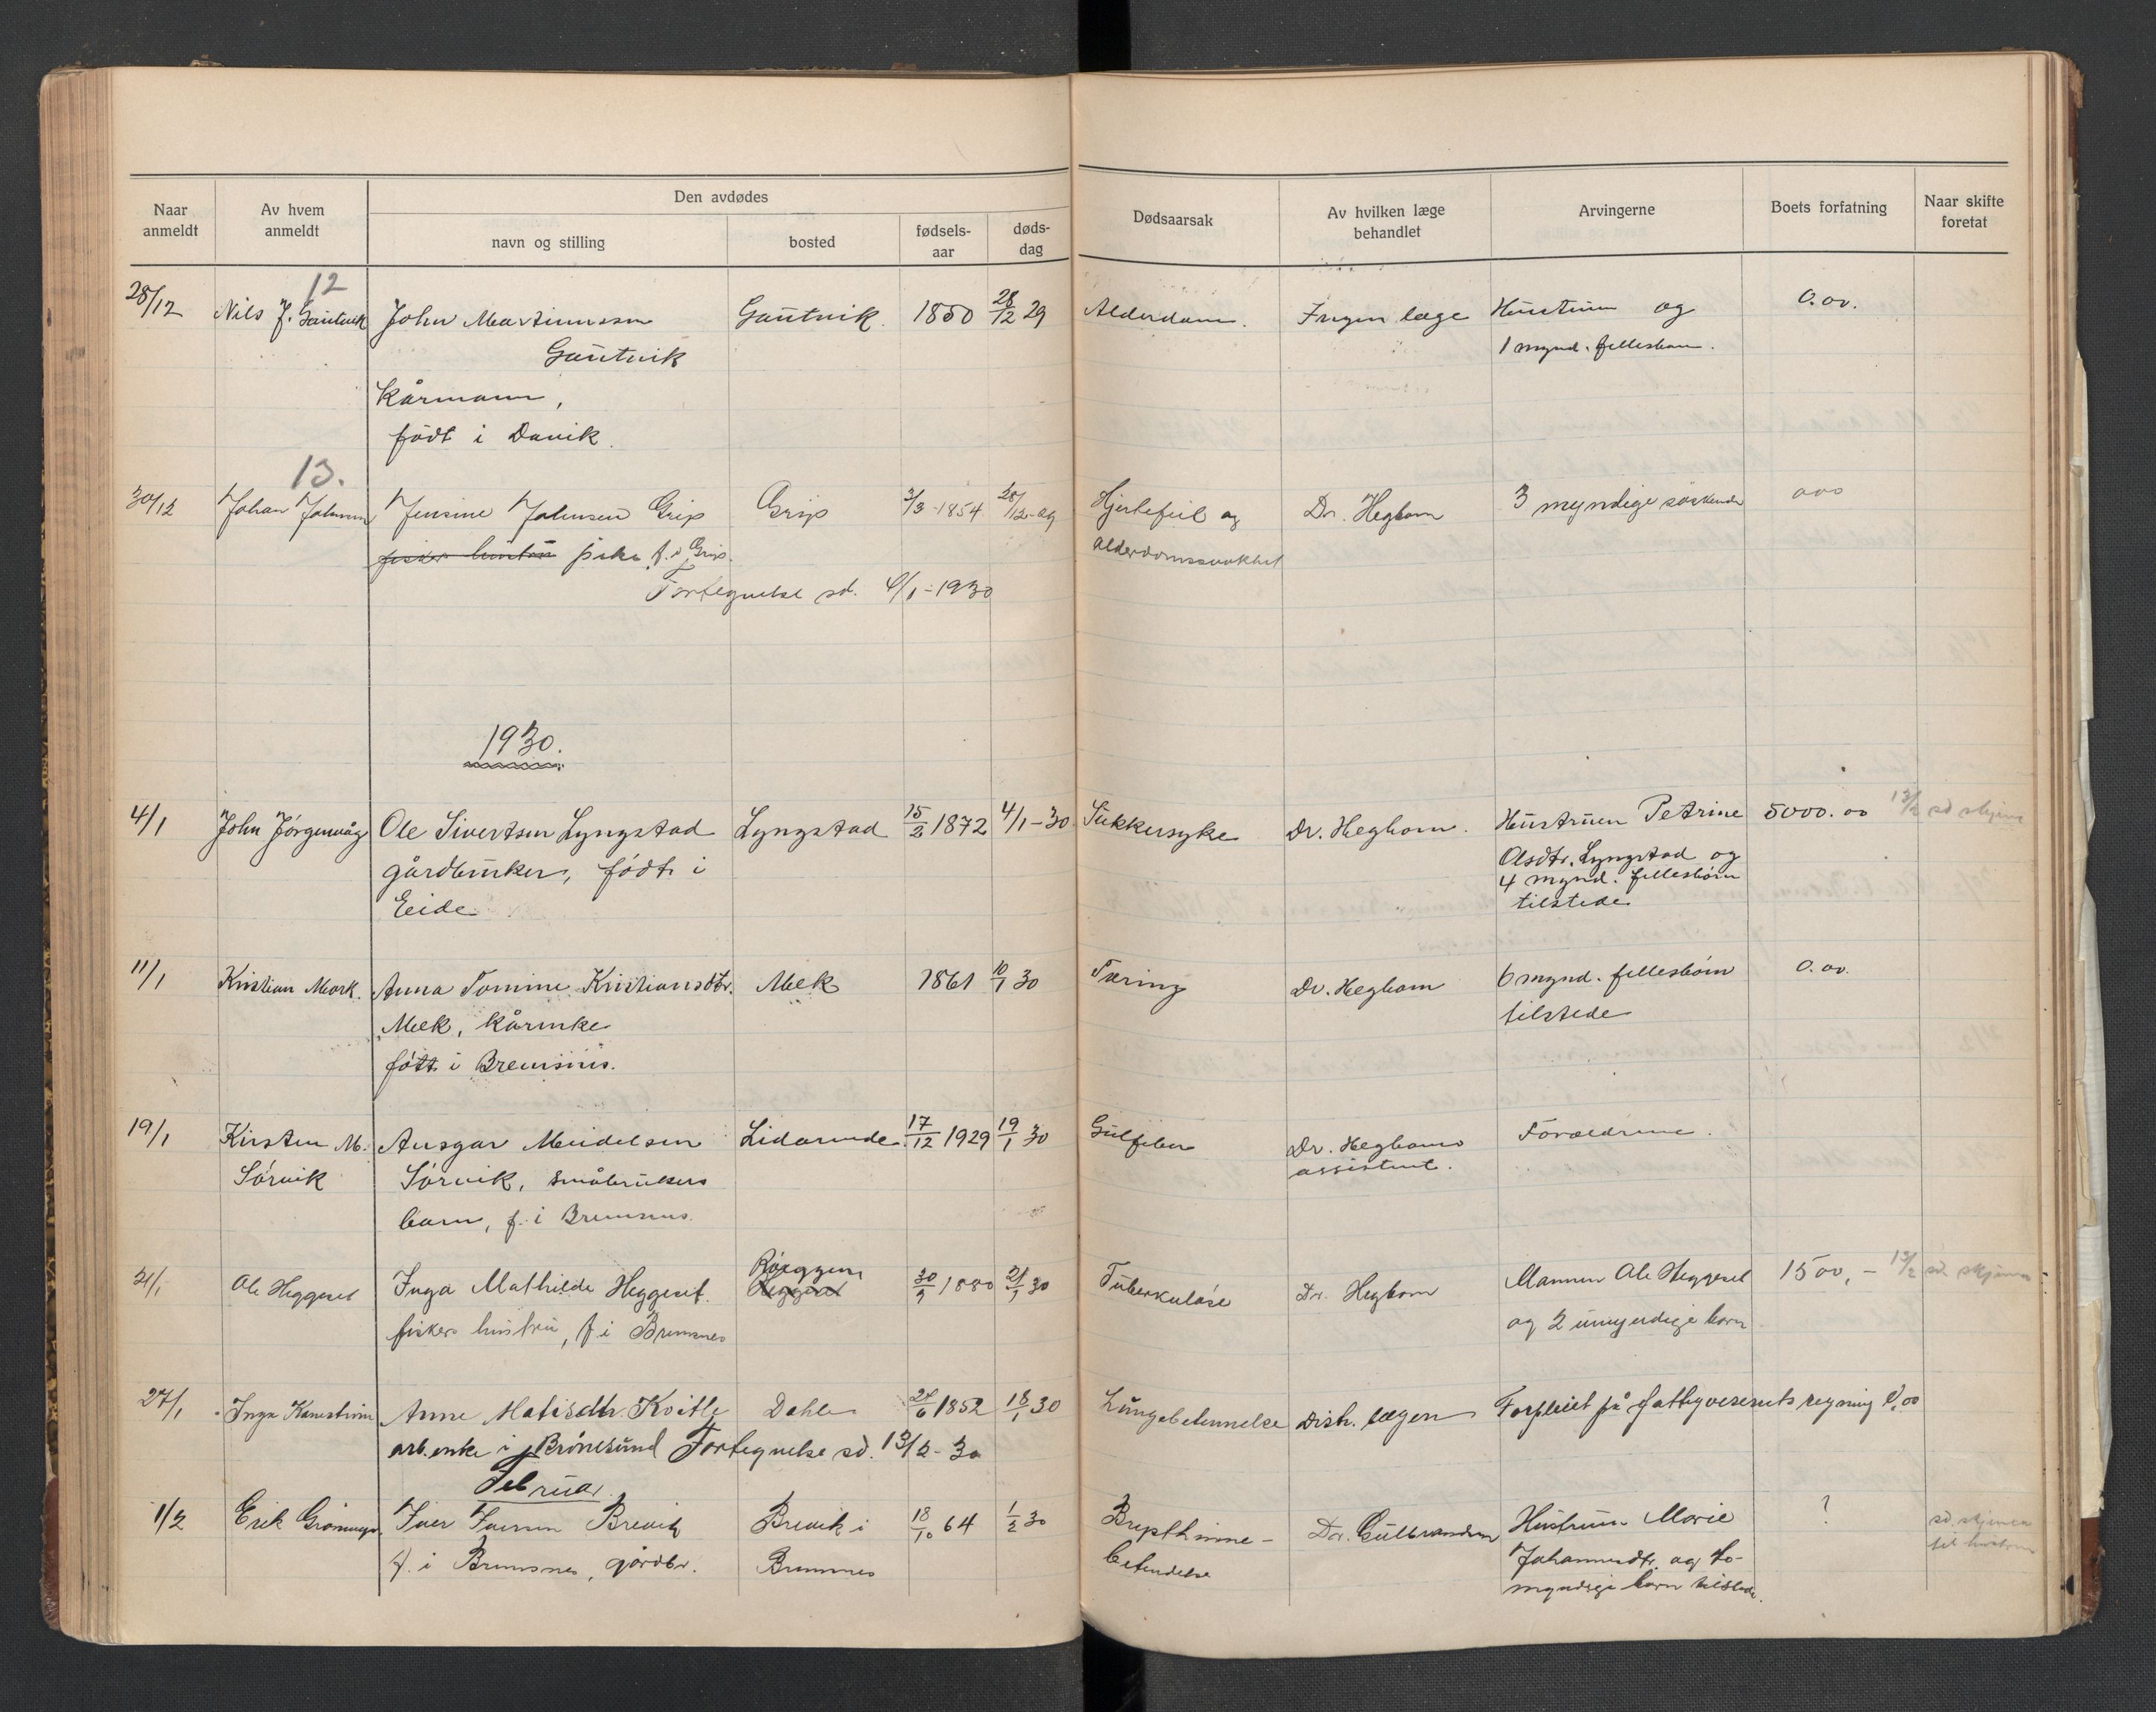 Naar anmeldt
Av hvem anmeldt
Den avdødes
navn og stilling
bosted
fødselsaar
dødsdag
Dødsaarsak
Av hvilken læge behandlet
Arvingerne
Boets forfatning
Naar skifte foretat
12
28/12 Nils J. Gautvik John Martinussen Gautvik. 1850 28/12 29 Alderdom. Ingen læge Hustruen og 0.00.
Gautvik 1 mynd. fellesbarn.
Kårmann,
født i Davik.
13.
30/12 Johan Johnsen Jensine Johnsen Grip Grip 3/3-1854 28/12-29 Hjertefeil og Dr. Heghom 3 myndige søskende 000
fisker hustru pike, f. i Grip. alderdomssvakhet
Fortegnelse sd. 6/1-1930
1930.
4/1 John Jörgenvåg Ole Sivertsen Lyngstad Lyngstad 15/2 1872 4/1-30 Sukkersyke Dr. Heghom. Hustruen Petrine 5000.00 13/2 sd skjema
gårdbruker, født i Olsdtr. Lyngstad og
Eide 4 mynd. fellesbörn
tilstede
11/1 Kristian Mork. Anna Tomine Kristiansdtr. Mek 1861 10/1 30 Tæring Dr. Heghom 6 mynd. fellesbörn 0.00.
Mek, kårenke tilstede
født i Bremsnes.
19/1 Kirsten M. Ansgar Meidelsen Lidarende 17/12 1929 19/1 30 Gulfeber Dr. Heghoms Foreldrene.
Sörvik Sörvik, småbrukers assistent.
barn, f. i Bremsnes.
21/1 Ole Heggeset Inga Mathilde Heggeset. Røeggen 30/9 1880 21/1 30 Tuberkulöse Dr. Heghom Mannen Ole Heggeset 1500,- 13/2 sd. skjema
fiskers hustru, f. i Bremsnes Heggeset og 2 umyndige barn
27/1 Inga Kanestrøm Anne Matisdtr. Kvitle Dahle 24/6 1852 18/1 30 Lungebetennelse Distr. lægen Forpleiet på fattigvesenets regning 0,00
arb. enke i Brönesund Fortegnelse sd. 13/2-30
Februar.
1/2 Erik Gröningen Iver Iversen Brevik Brevik i 18/10 64 1/2 30 Brysthinne- Dr. Gulbrandsen Hustruen Marie ? sd. skjema
f. i Bremsnes, gårdbr. Bremsnes betendelse Johannesdtr. og to til hustruen
myndige barn tilstede.